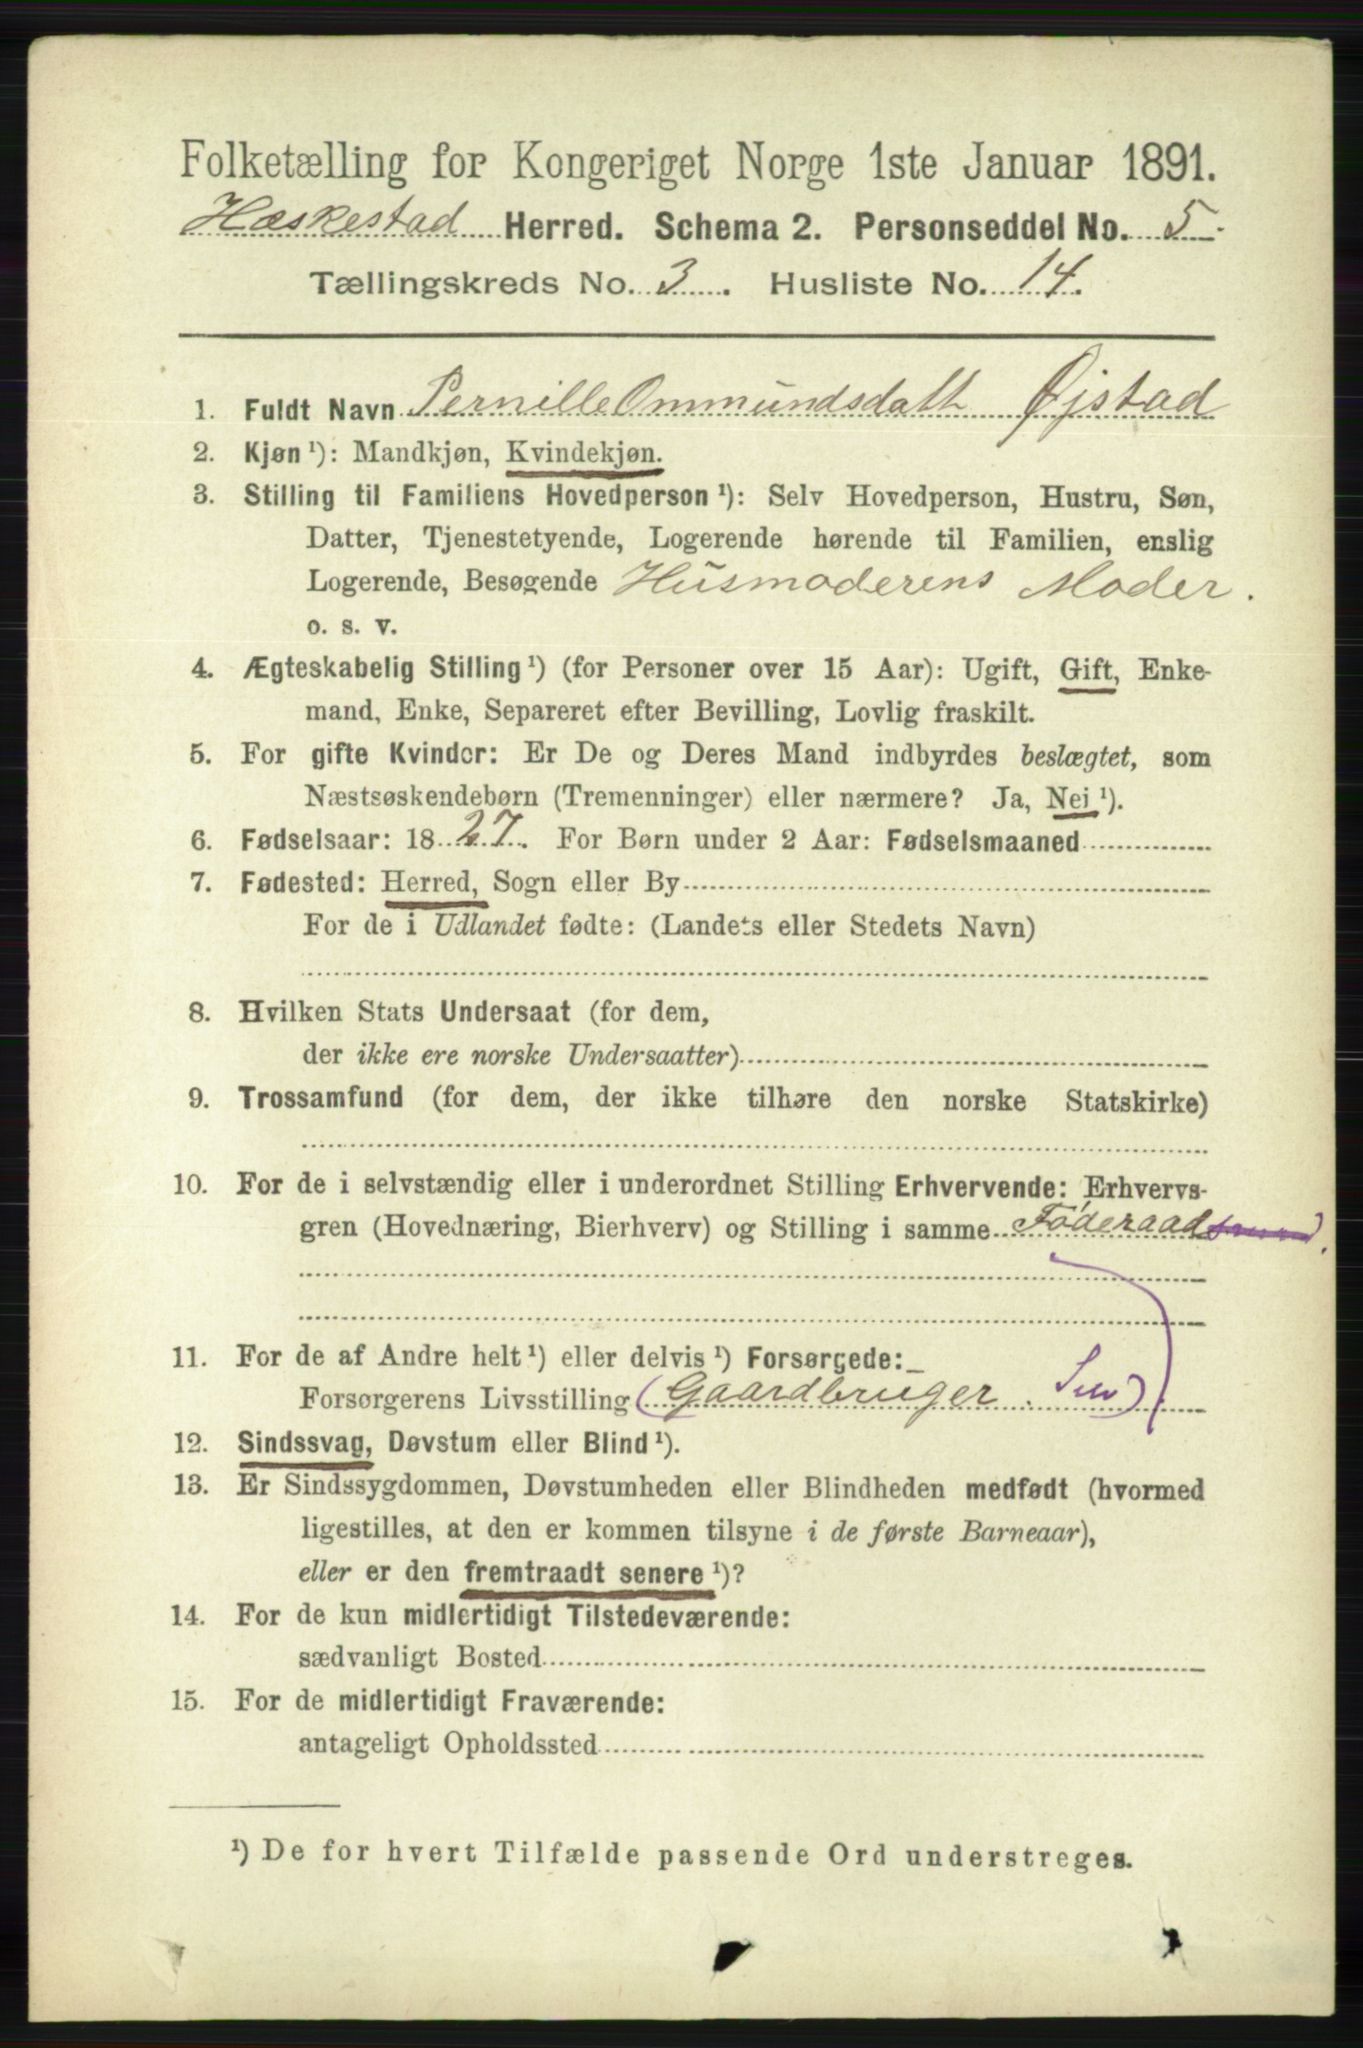 Folketælling for Kongeriget Norge 1ste Januar 1891.
Hæskestad Herred. Schema 2. Personseddel No. 5.
Tællingskreds No. 3. Husliste No. 14.
1. Fuldt Navn Pernille Ommundsdatt Øjstad
2. Kjøn ¹): Mandkjøn, Kvindekjøn.
3. Stilling til Familiens Hovedperson ¹): Selv Hovedperson, Hustru, Søn,
Datter, Tjenestetyende, Logerende hørende til Familien, enslig
Logerende, Besøgende Husmoderens Moder.
o. s. v.
4. Ægteskabelig Stilling ¹) (for Personer over 15 Aar): Ugift, Gift, Enke-
mand, Enke, Separeret efter Bevilling, Lovlig fraskilt.
5. For gifte Kvinder: Er De og Deres Mand indbyrdes beslægtet, som
Næstsøskendebørn (Tremenninger) eller nærmere? Ja, Nei ¹).
6. Fødselsaar: 1827. For Børn under 2 Aar: Fødselsmaaned
7. Fødested: Herred, Sogn eller By
For de i Udlandet fødte: (Landets eller Stedets Navn)
8. Hvilken Stats Undersaat (for dem,
der ikke ere norske Undersaatter)
9. Trossamfund (for dem, der ikke tilhøre den norske Statskirke)
10. For de i selvstændig eller i underordnet Stilling Erhvervende: Erhvervs-
gren (Hovednæring, Bierhverv) og Stilling i samme Föderaad
11. For de af Andre helt ¹) eller delvis ¹) Forsørgede:
Forsørgerens Livsstilling (Gaardbruger.
12. Sindssvag, Døvstum eller Blind ¹).
13. Er Sindssygdommen, Døvstumheden eller Blindheden medfødt (hvormed
ligestilles, at den er kommen tilsyne i de første Barneaar),
eller er den fremtraadt senere ¹)?
14. For de kun midlertidigt Tilstedeværende:
sædvanligt Bosted
15. For de midlertidigt Fraværende:
antageligt Opholdssted
¹) De for hvert Tilfælde passende Ord understreges.